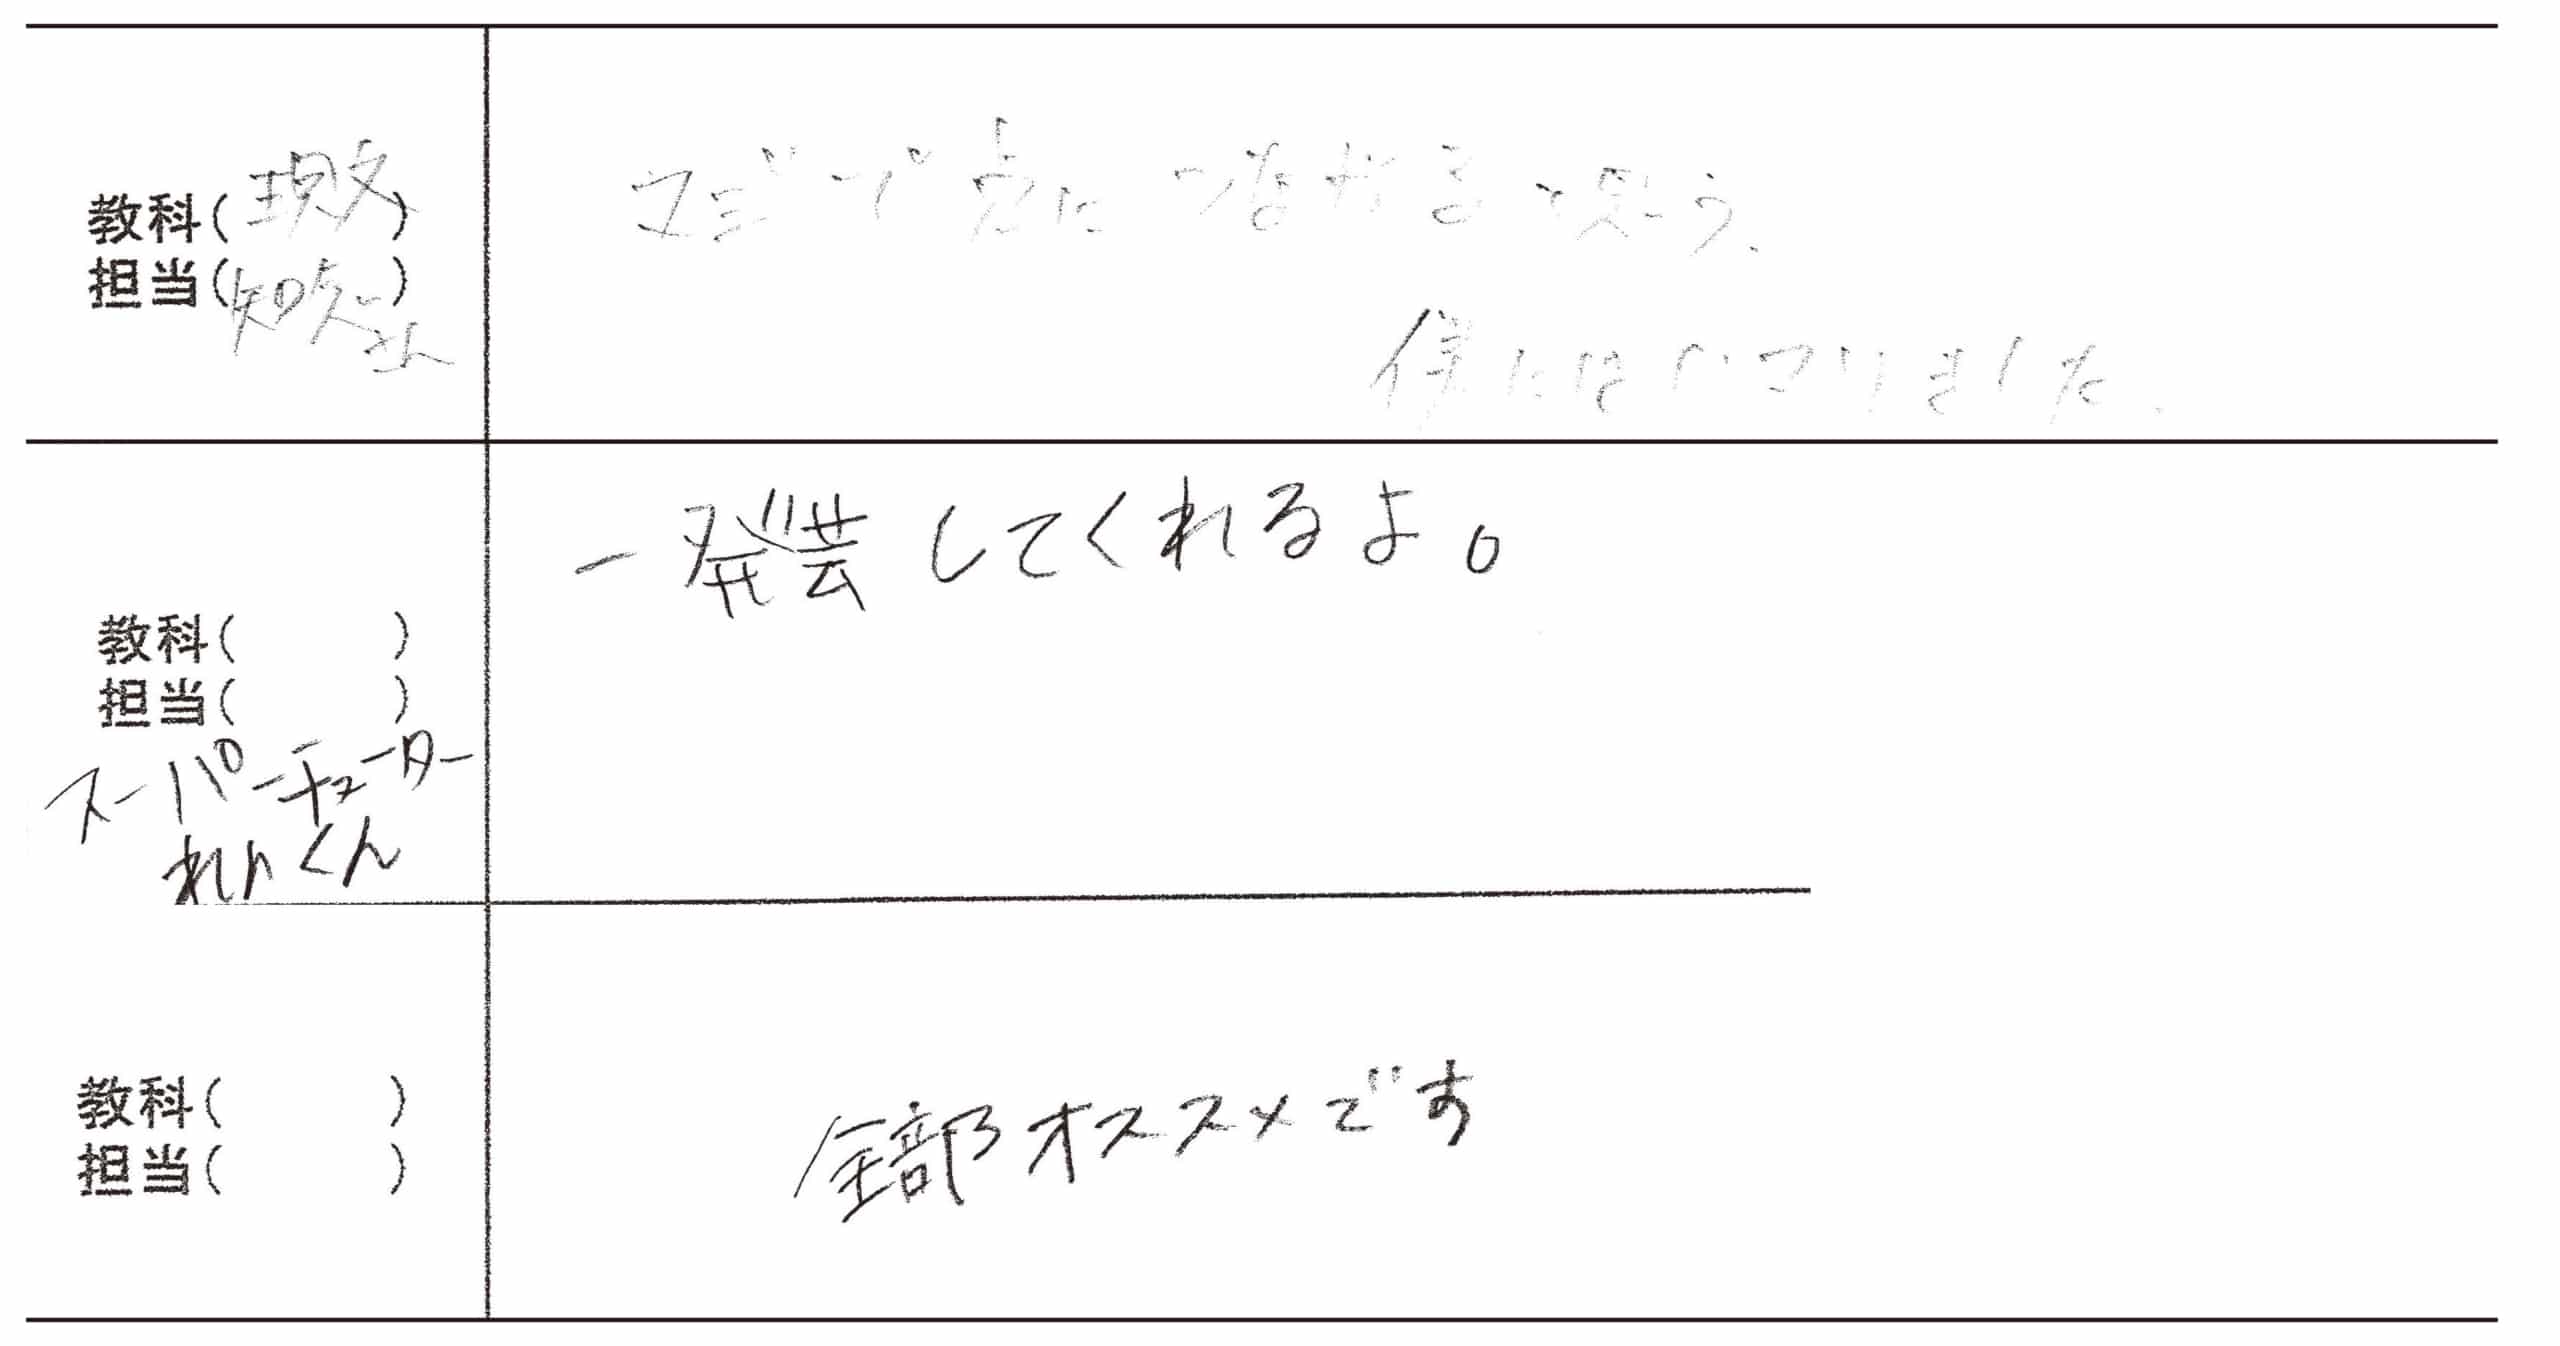 教科(現文)
担当(知久さん)
マジで点につながると思う.
僕にはハマりました.
一発芸してくれるよ。
教科( )
担当( )
スーパーチューター
れいくん
全部オススメです
教科( )
担当( )